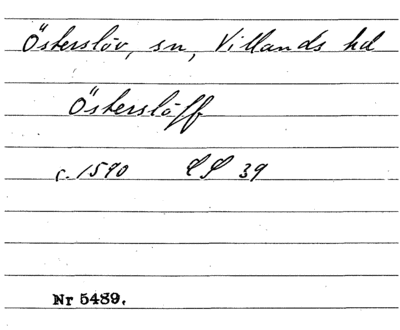 Österslöv, sn, Villands hd
Österslöff
c. 1590 LS 39
Nr 5489.